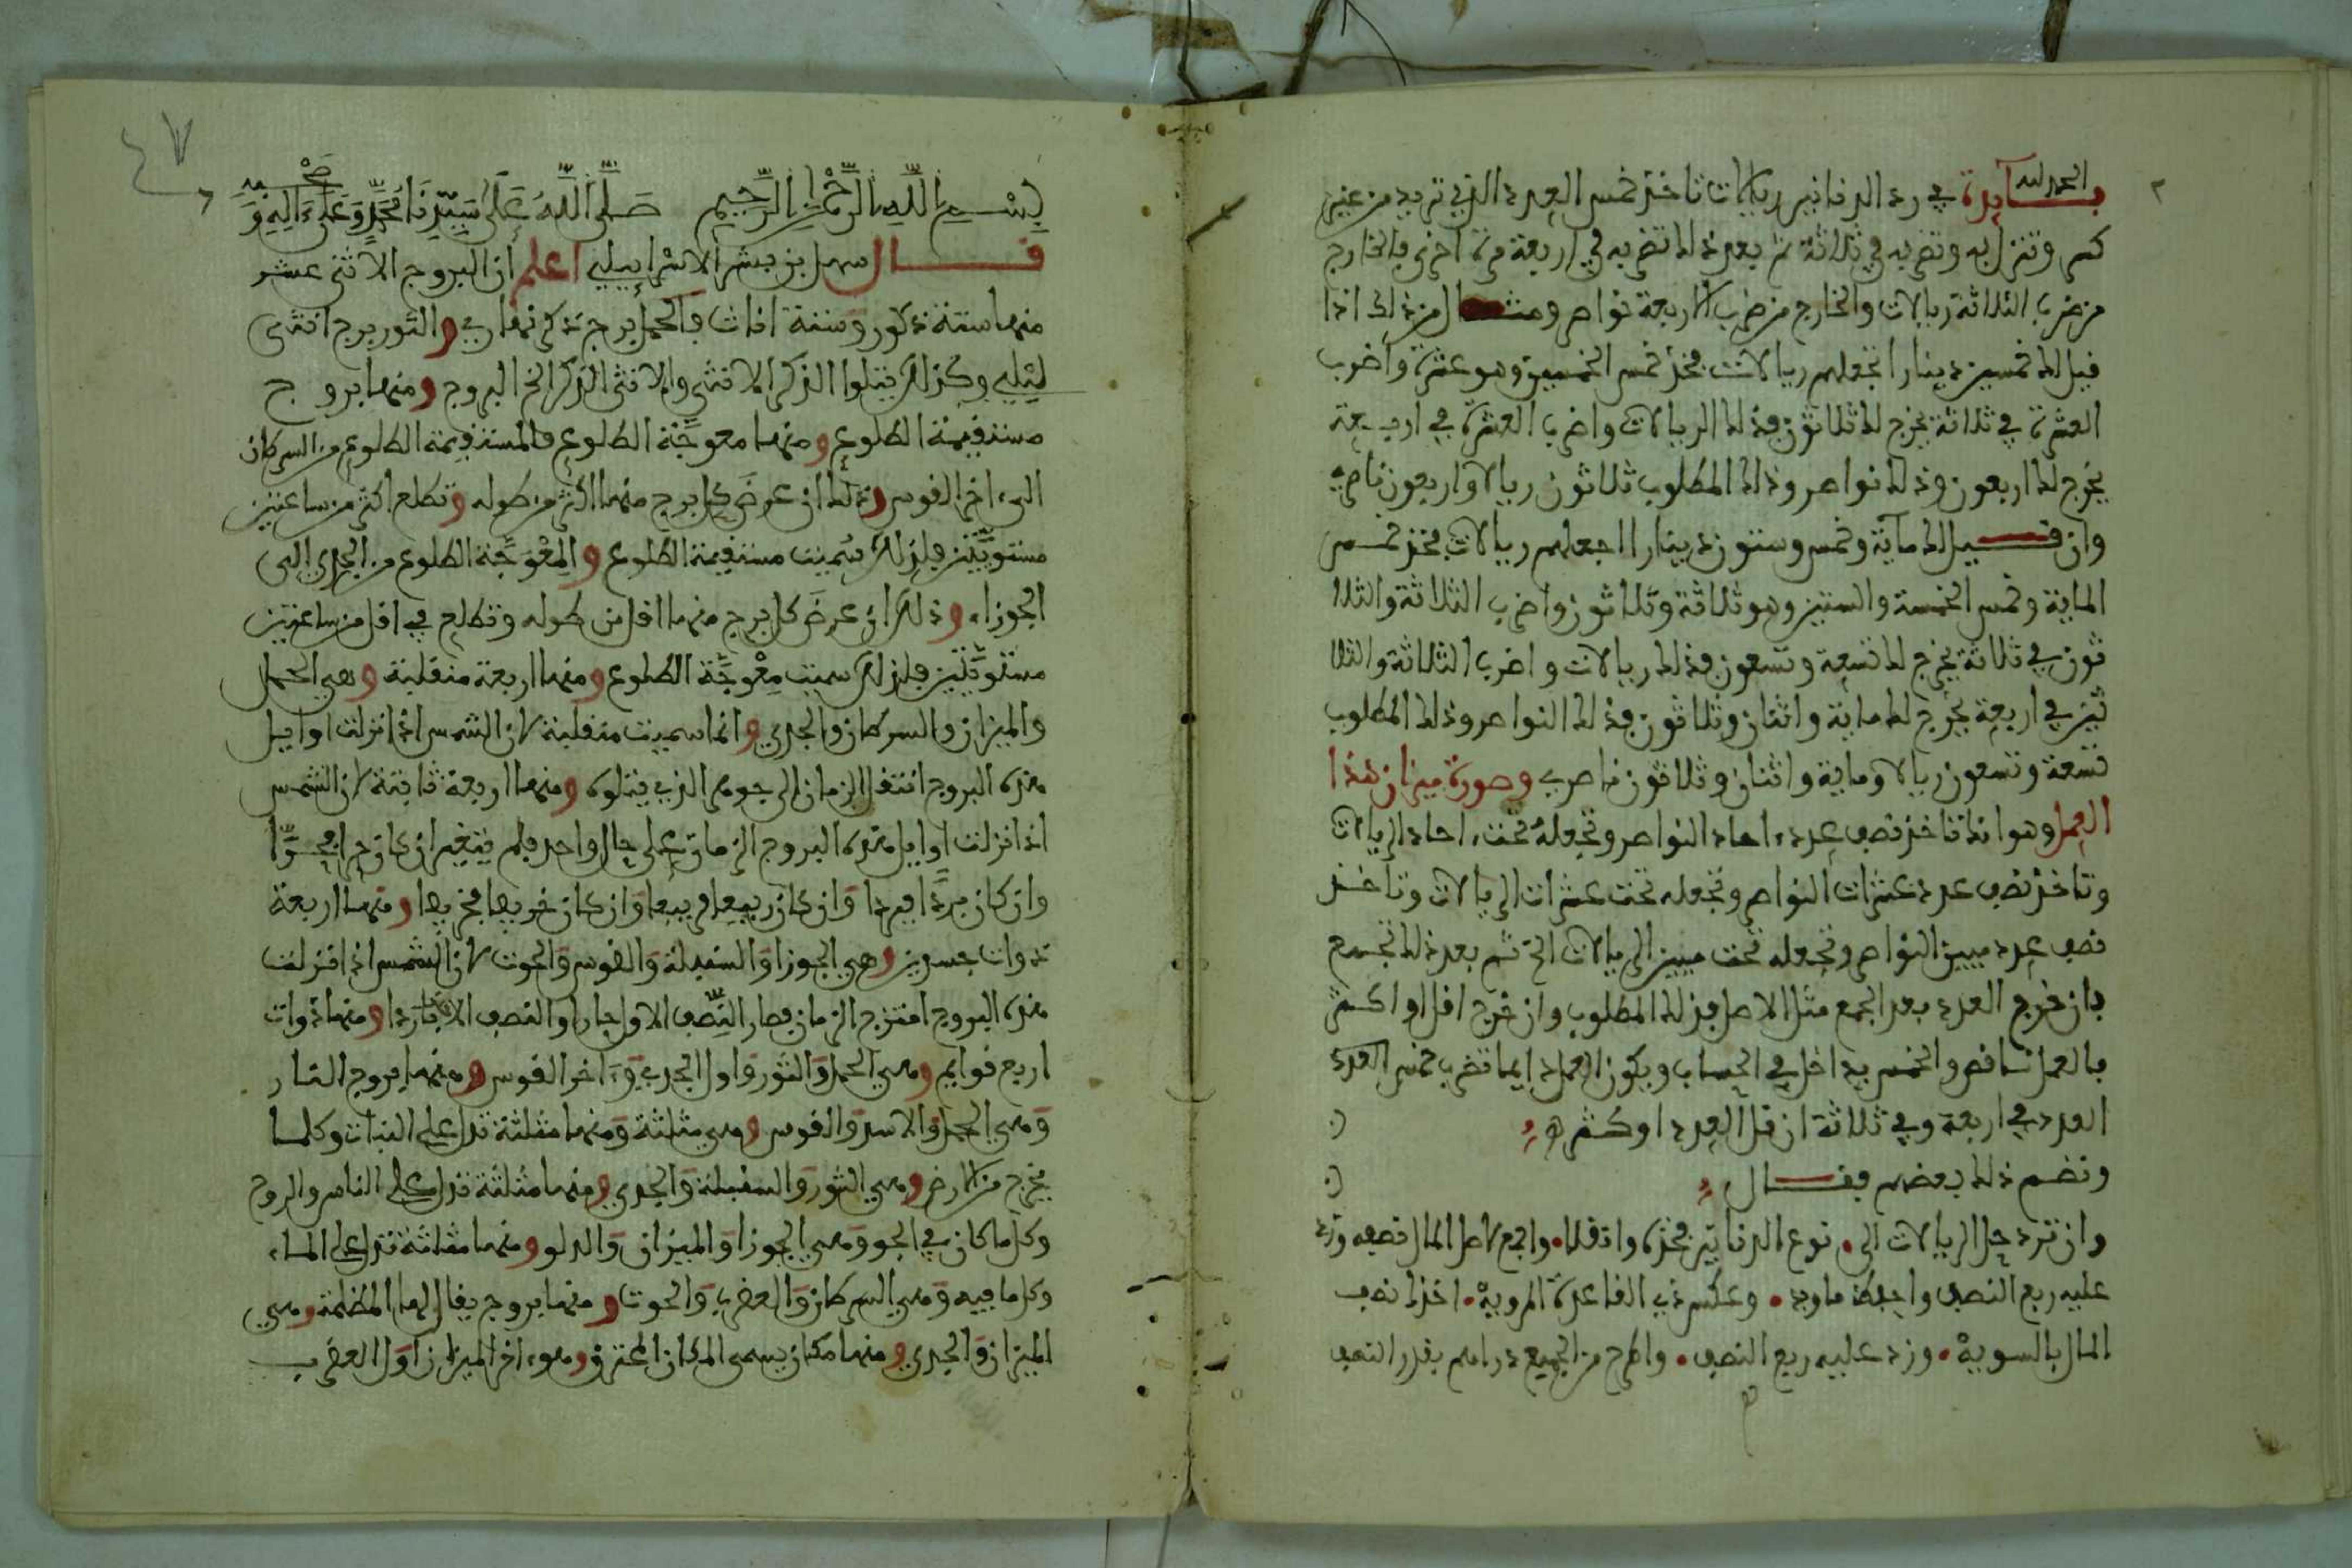 الحمد لله
فايدة في رد الدنانير ريالات تاخذ خمس العدد الذي تريد من غير
كسر وتنزل به وتضربه في ثلاثة ثم بعد ذلك تضربه في اربعة مرة اخرى فالخارج
من ضرب الثلاثة ريالات والخارج من ضرب الاربعة نواصر ومثال من ذلك اذا
قيل لك خمسين دينارا اجعلهم ريالات فخذ خمس الخمسين وهو عشرة واضرب
العشرة في ثلاثة يخرج لك ثلاثون فذلك الريالات واضرب العشرة في اربعة
يخرج لك اربعون وذلك نواصر وذلك المطلوب ثلاثون ريالا واربعون ناصري
وان قيل لك ماية وخمس وستون دينارا اجعلهم ريالات فخذ خمس
الماية وخمس الخمسة والستين وهو ثلاثة وثلاثون واضرب الثلاثة والثلا
ثون في ثلاثة يخرج لك تسعة وتسعون فذلك ريالات واضرب الثلاثة والثلا
ثين في اربعة يخرج لك ماية واثنان وثلاثون فذلك النواصر وذلك المطلوب
تسعة وتسعون ريالا وماية واثنان وثلاثون ناصري وصورة ميزان هذا
العمل وهو انك تاخذ نصف عدد احاد النواصر وتجعله تحت احاد الريالات
وتاخذ نصف عدد عشرات النواصر وتجعله تحت عشرات الريالات وتاخذ
نصف عدد ميين النواصر وتجعله تحت ميين الريالات الخ ثم بعد ذلك تجمع
فان خرج العدد بعد الجمع مثل الاصل فذلك المطلوب وان خرج اقل او اكثر
فالعمل ناقص والخمس يداخل في الحساب ويكون العمل دايما تضرب خمس العدد
العدد في اربعة وفي ثلاثة ان قل العدد او كثر
ونضم ذلك بعضهم فقال
وان ترد حل الريالات الى نوع الدنانير فخذه وانقلا واجمع لاصل المال نصفه وزد
عليه ربع النصف واحفظ ما وجد وعكس ذي القاعدة المروية اخذك نصف
المال بالسوية وزد عليه ربع النصف واطرح من الجميع دراهم بقدر النصف
بسم الله الرحمن الرحيم صلى الله على سيدنا محمد وعلى ءاله وصحبه
قال سهل بن بشر الاسراييلي اعلم ان البروج الاثني عشر
منها ستة ذكور وستة اناث فالحمل برج ذكر نهاري والثور برج انثى
ليلي وكذلك يتلوا الذكر الانثى والانثى الذكر الخ البروج ومنها بروج
مستقيمة الطلوع ومنها معوجة الطلوع فالمستقيمة الطلوع من السرطان
الى اخر القوس وذلك ان عرض كل برج منها اكثر من طوله وتطلع اكثر من ساعتين
مستويتين فلذلك سميت مستقيمة الطلوع والمعوجة الطلوع من الجدي الى
الجوزاء وذلك ان عرض كل برج منها اقل من طوله وتطلع في اقل من ساعتين
مستويتين فلذلك سميت معوجة الطلوع ومنها اربعة منقلبة وهي الحمل
والميزان والسرطان والجدي وانما سميت منقلبة لان الشمس اذا نزلت اوايل
هذه البروج انتقل الزمان الى جوهر الذي يتلوه ومنها اربعة ثابتة لان الشمس
اذا نزلت اوايل هذه البروج الزمان على حال واحد فلم يتغير ان كان حرا فحرا
وان كان بردا فبردا وان كان ربيعا فربيعا وان كان خريفا فخريفا ومنها اربعة
ذوات جسدين وهي الجوزا والسنبلة والقوس والحوت لان الشمس اذا نزلت
هذه البروج امتزج الزمان فصار النصف الاول حارا والنصف الاخر باردا ومنها ذوات
اربع قوايم وهي الحمل والثور واول الجدي وءاخر القوس ومنها بروج النار
وهي الحمل والاسد والقوس وهي مثلثة ومنها مثلثة تدل على النبات وكلما
يخرج من الارض وهي الثور والسنبلة والجدي ومنها مثلثة تدل على الناس والروح
وكل ما كان في الجو وهي الجوزا والميزان والدلو ومنها مثلثة تدل على الماء
وكل ما فيه وهي السرطان والعقرب والحوت ومنها بروج يقال لها المظلمة وهي
الميزان والجدي ومنها مكان يسمى المكان المحترق وهو ءاخر الميزان واول العقرب